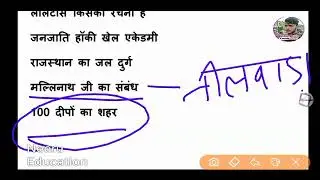 लीलटांस किसकी रचना है
जनजाति हॉकी खेल एकेडमी
राजस्थान का जल दुर्ग
मल्लिनाथ जी का संबंध — तीलवाडा
100 दीपों का शहर
Neeru
Education